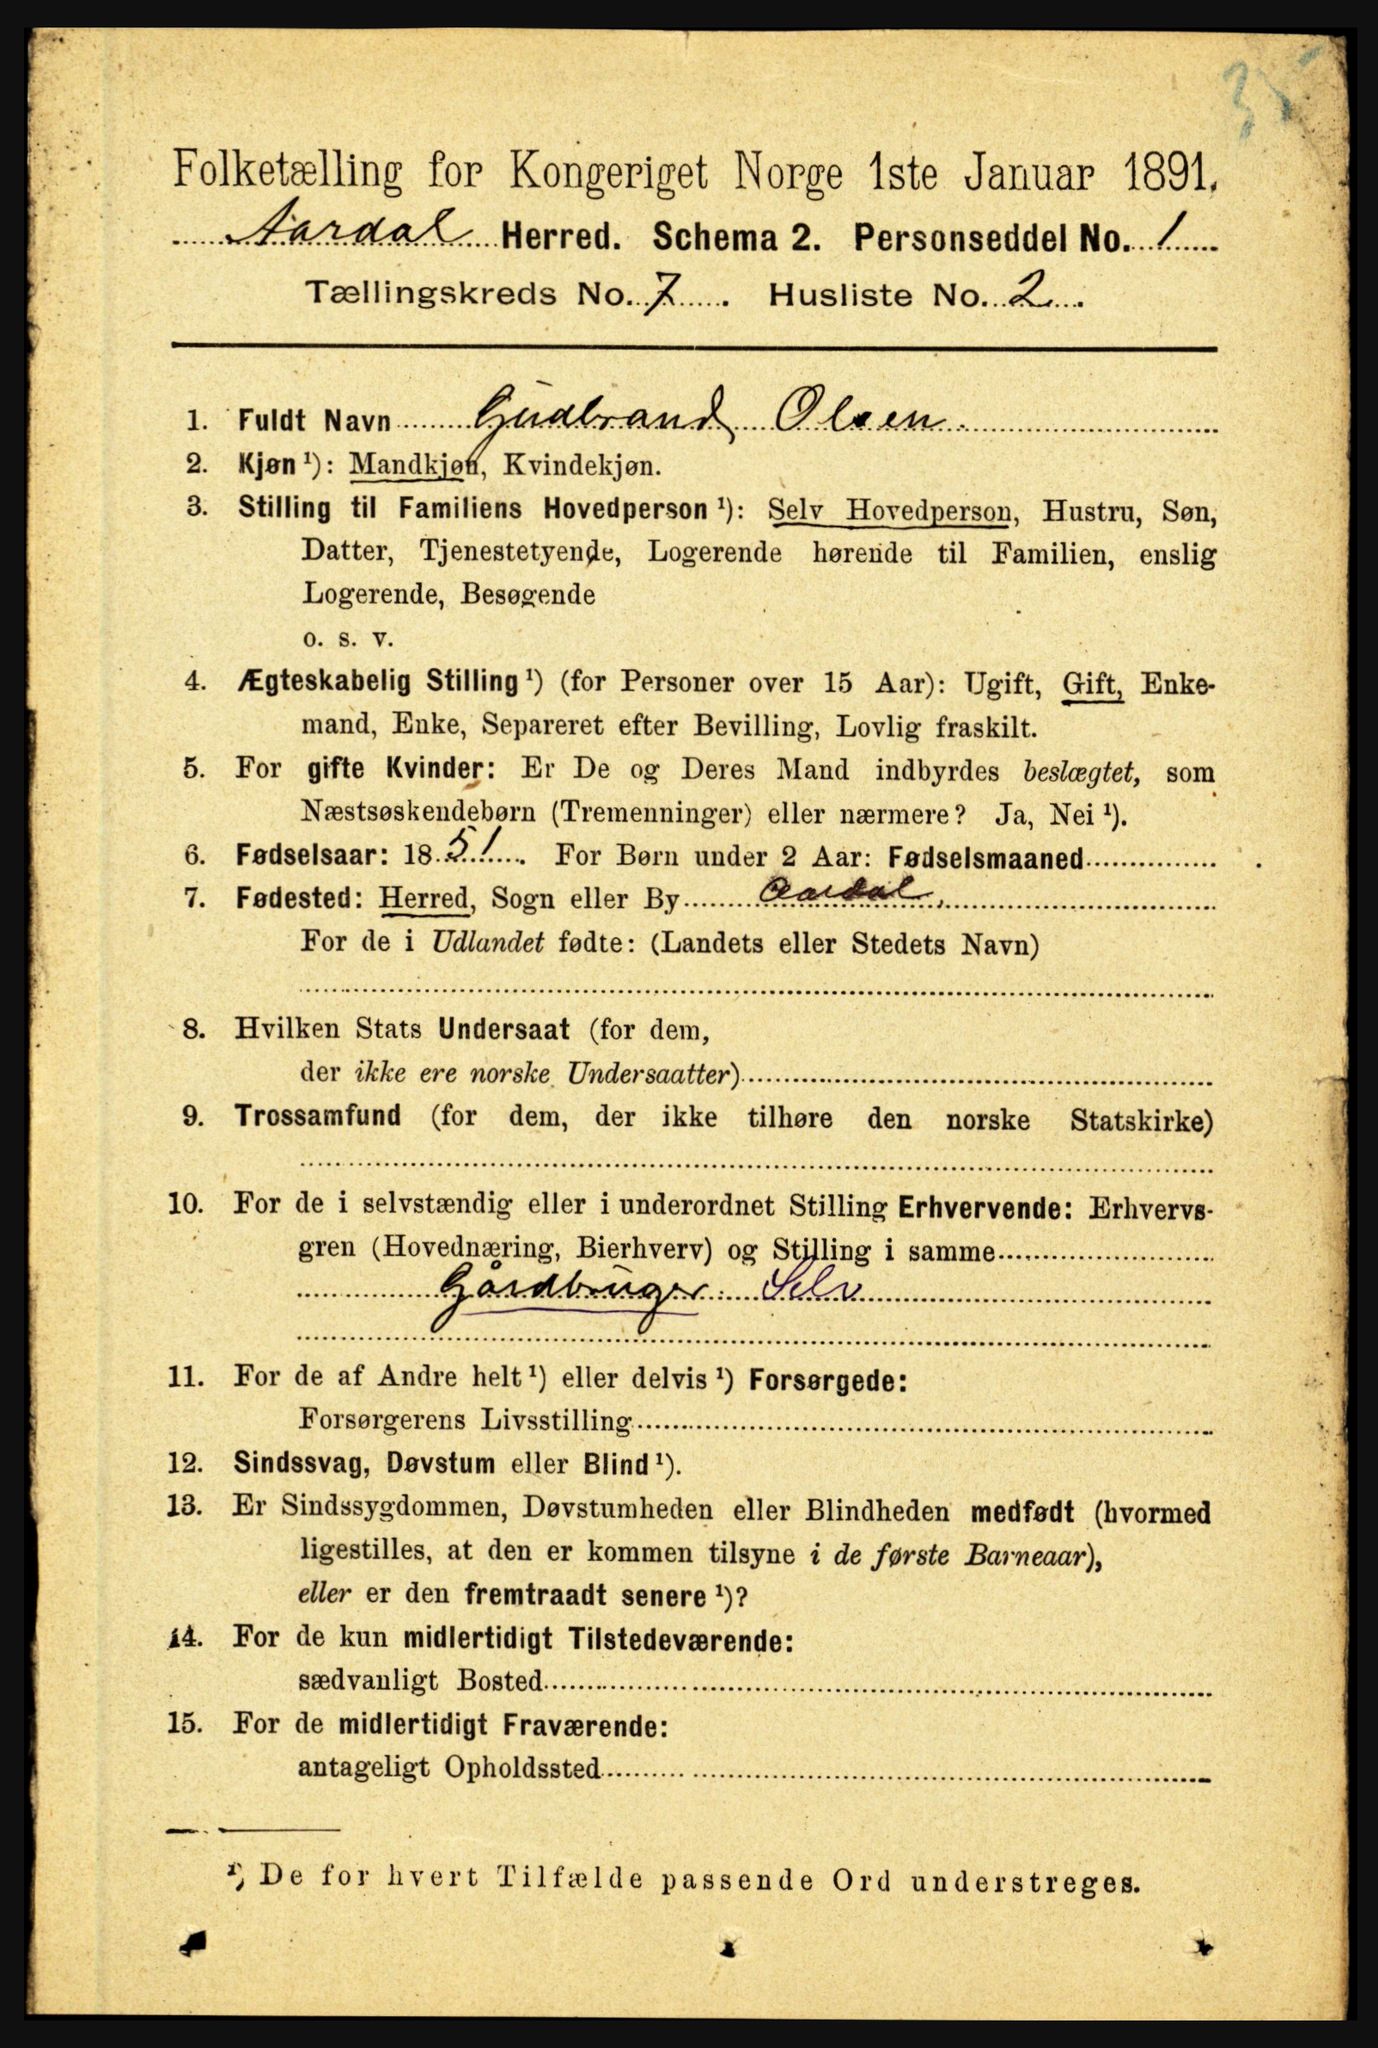 35
Folketælling for Kongeriget Norge 1ste Januar 1891.
Aardal Herred. Schema 2. Personseddel No. 1
Tællingskreds No. 7. Husliste No. 2.
1. Fuldt Navn Gudbrand Olsen
2. Kjøn ¹): Mandkjøn, Kvindekjøn.
3. Stilling til Familiens Hovedperson ¹): Selv Hovedperson, Hustru, Søn,
Datter, Tjenestetyende, Logerende hørende til Familien, enslig
Logerende, Besøgende
o. s. v.
4. Ægteskabelig Stilling ¹) (for Personer over 15 Aar): Ugift, Gift, Enke-
mand, Enke, Separeret efter Bevilling, Lovlig fraskilt.
5. For gifte Kvinder: Er De og Deres Mand indbyrdes beslægtet, som
Næstsøskendebørn (Tremenninger) eller nærmere? Ja, Nei ¹).
6. Fødselsaar: 1851. For Børn under 2 Aar: Fødselsmaaned
7. Fødested: Herred, Sogn eller By Aardal,
For de i Udlandet fødte: (Landets eller Stedets Navn)
8. Hvilken Stats Undersaat (for dem,
der ikke ere norske Undersaatter)
9. Trossamfund (for dem, der ikke tilhøre den norske Statskirke)
10. For de i selvstændig eller i underordnet Stilling Erhvervende: Erhvervs-
gren (Hovednæring, Bierhverv) og Stilling i samme
Gårdbruger Selv
11. For de af Andre helt ¹) eller delvis ¹) Forsørgede:
Forsørgerens Livsstilling
12. Sindssvag, Døvstum eller Blind ¹).
13. Er Sindssygdommen, Døvstumheden eller Blindheden medfødt (hvormed
ligestilles, at den er kommen tilsyne i de første Barneaar),
eller er den fremtraadt senere ¹)?
14. For de kun midlertidigt Tilstedeværende:
sædvanligt Bosted
15. For de midlertidigt Fraværende:
antageligt Opholdssted
¹) De for hvert Tilfælde passende Ord understreges.